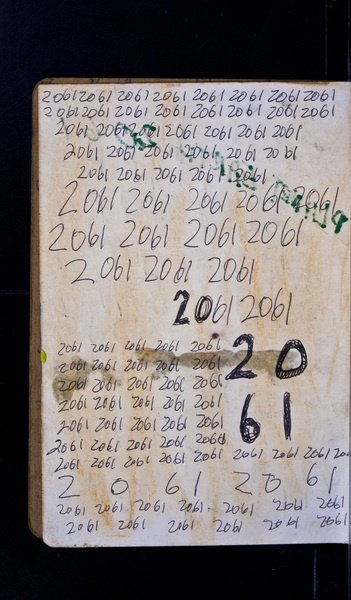 2061 2061 2061 2061 2061 2061 2061 2061
2061 2061 2061 2061 2061 2061 2061 2061
2061 2061 2061 2061 2061 2061 2061
2061 2061 2061 2061 2061 2061
2061 2061 2061 2061 2061
2061 2061 2061 2061 2061
2061 2061 2061 2061
2061 2061 2061
2061 2061
2061 2061 2061 2061 2061
20
2061 2061 2061 2061 2061
2061 2061 2061 2061 2061
2061 2061 2061 2061 2061
61
2061 2061 2061 2061 2061
2061 2061 2061 2061 2061
2061 2061 2061 2061 2061 2061 2061 2061 20
2 0 61 20 61
2061 2061 2061 2061 2061 2061 2061
2061 2061 2061 2061 2061 2061